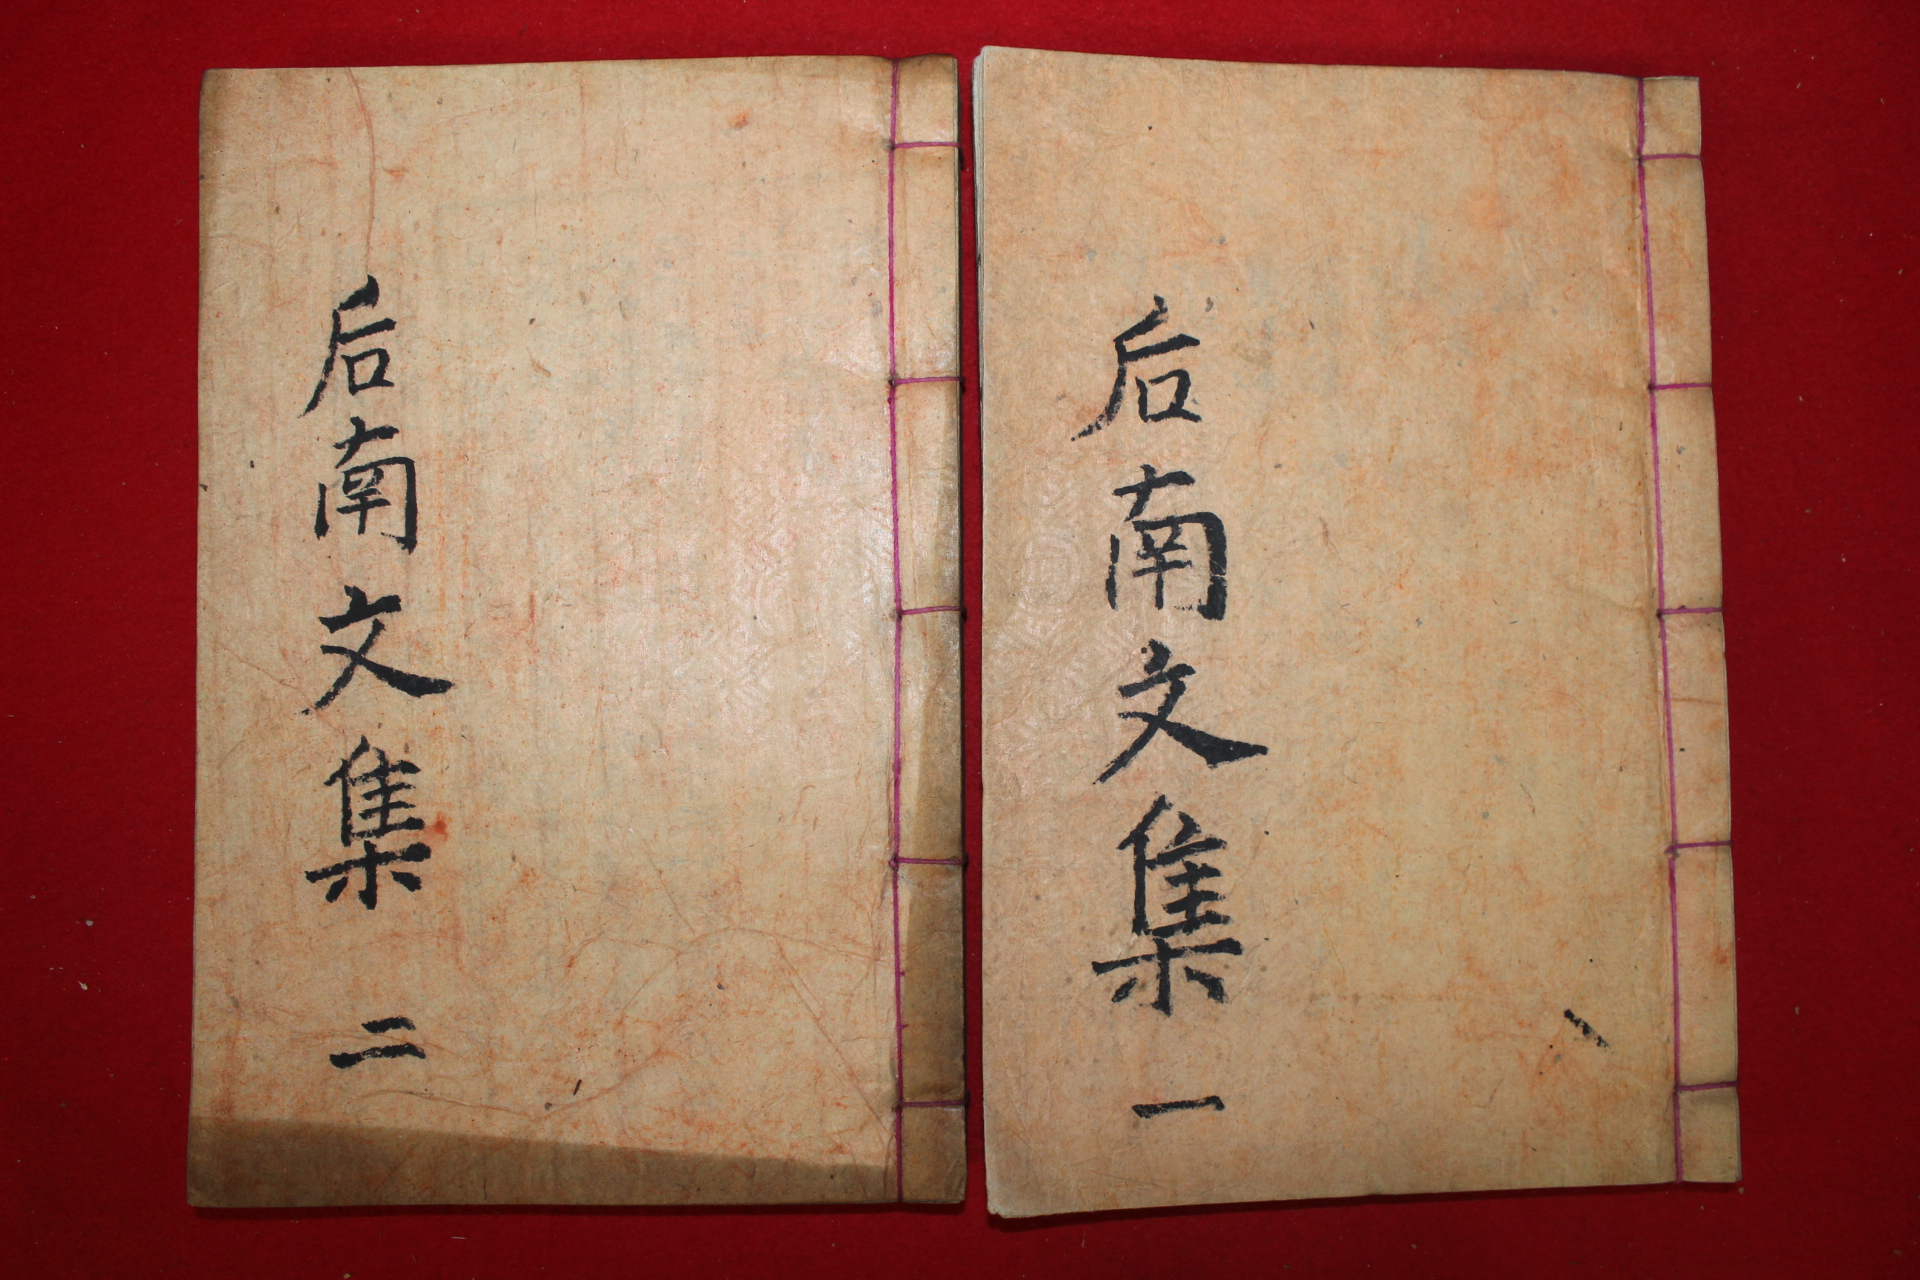 后南文集 一
后南文集 二